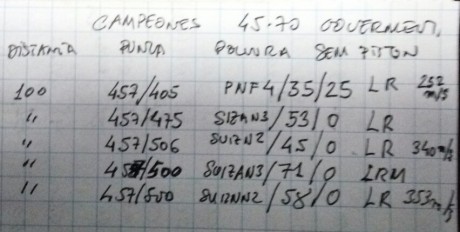 CAMPEONES 45-70 GOVERMENT
DISTANCIA PUNTA POLVORA SEM PISTON
100 457/405 PNF4/35/25 LR 252 m/s
" 457/475 SUIZAN3/53/0 LR
" 457/506 SUIZN2/45/0 LR 340m/s
" 457/500 SUIZAN3/71/0 LRM
" 457/500 SUIZNN2/58/0 LR 353m/s